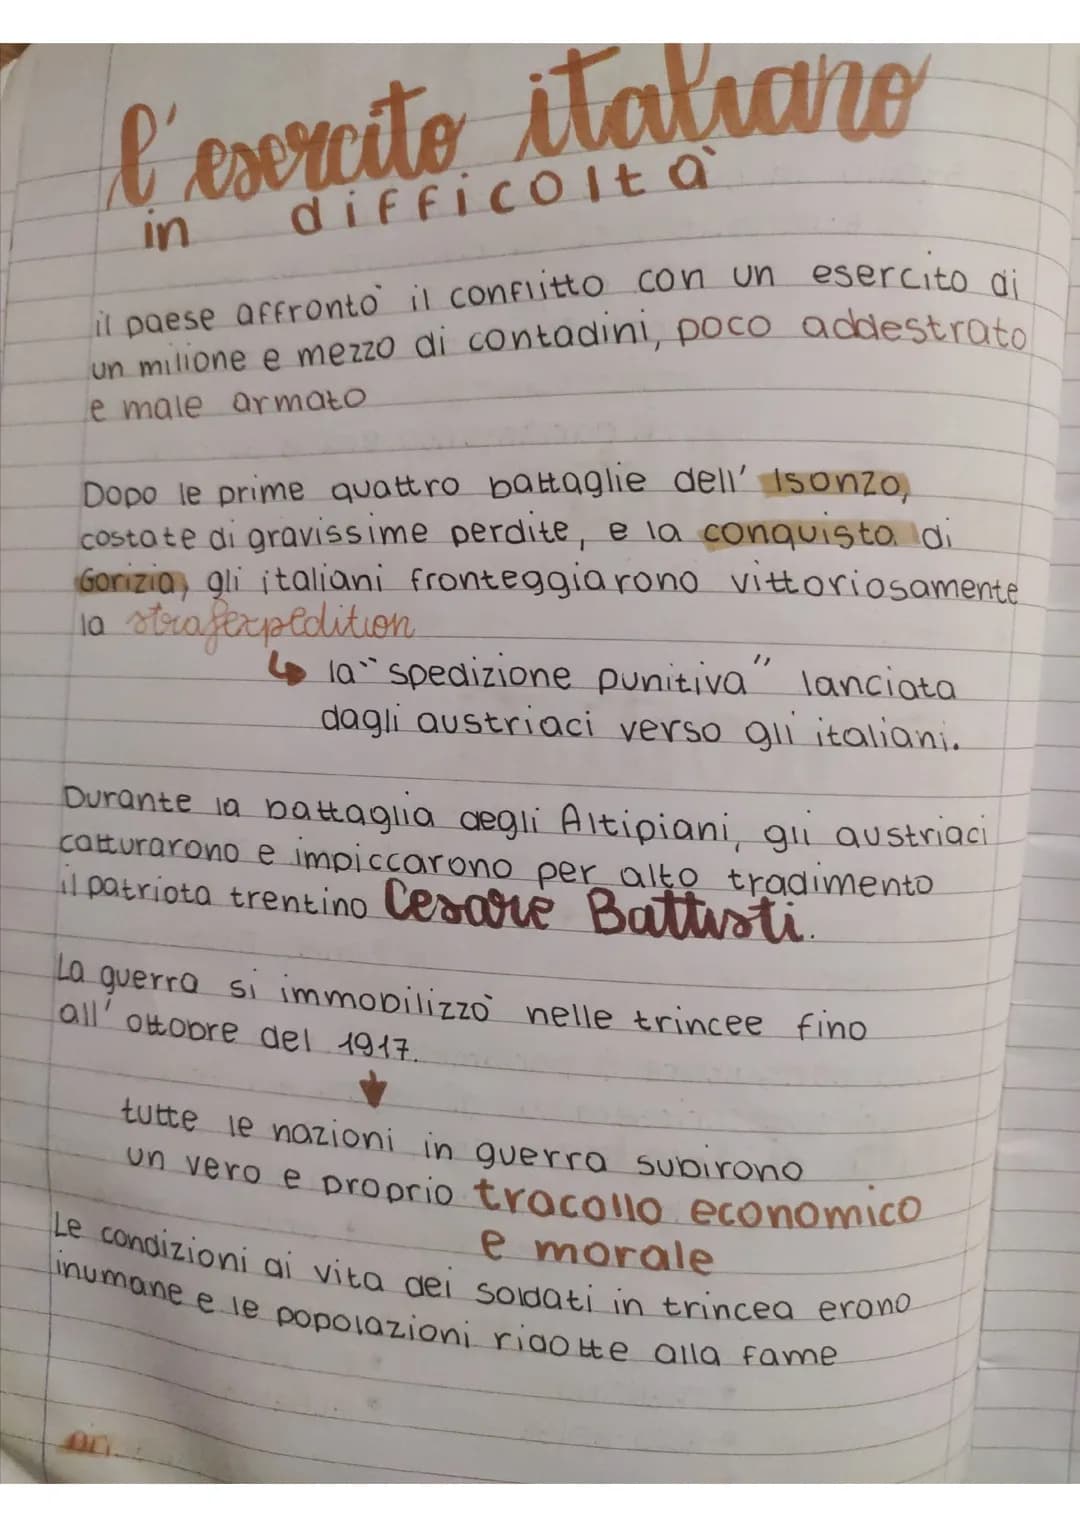 l'esercito italiano
in difficoltà
il paese affrontò il conflitto con un esercito di
un milione e mezzo di contadini, poco addestrato
e male armato
Dopo le prime quattro battaglie dell' Isonzo,
costate di gravissime perdite, e la conquista di
Gorizia, gli italiani fronteggiarono vittoriosamente
la strafexpedition
↳ la "spedizione punitiva" lanciata
dagli austriaci verso gli italiani.
Durante la battaglia degli Altipiani, gli austriaci
catturarono e impiccarono per alto tradimento
il patriota trentino Cesare Battisti.
La guerra si immobilizzò nelle trincee fino
all' ottobre del 1917.
↓
tutte le nazioni in guerra subirono
un vero e proprio tracollo economico
e morale
Le condizioni di vita dei soldati in trincea erano
inumane e le popolazioni ridotte alla fame